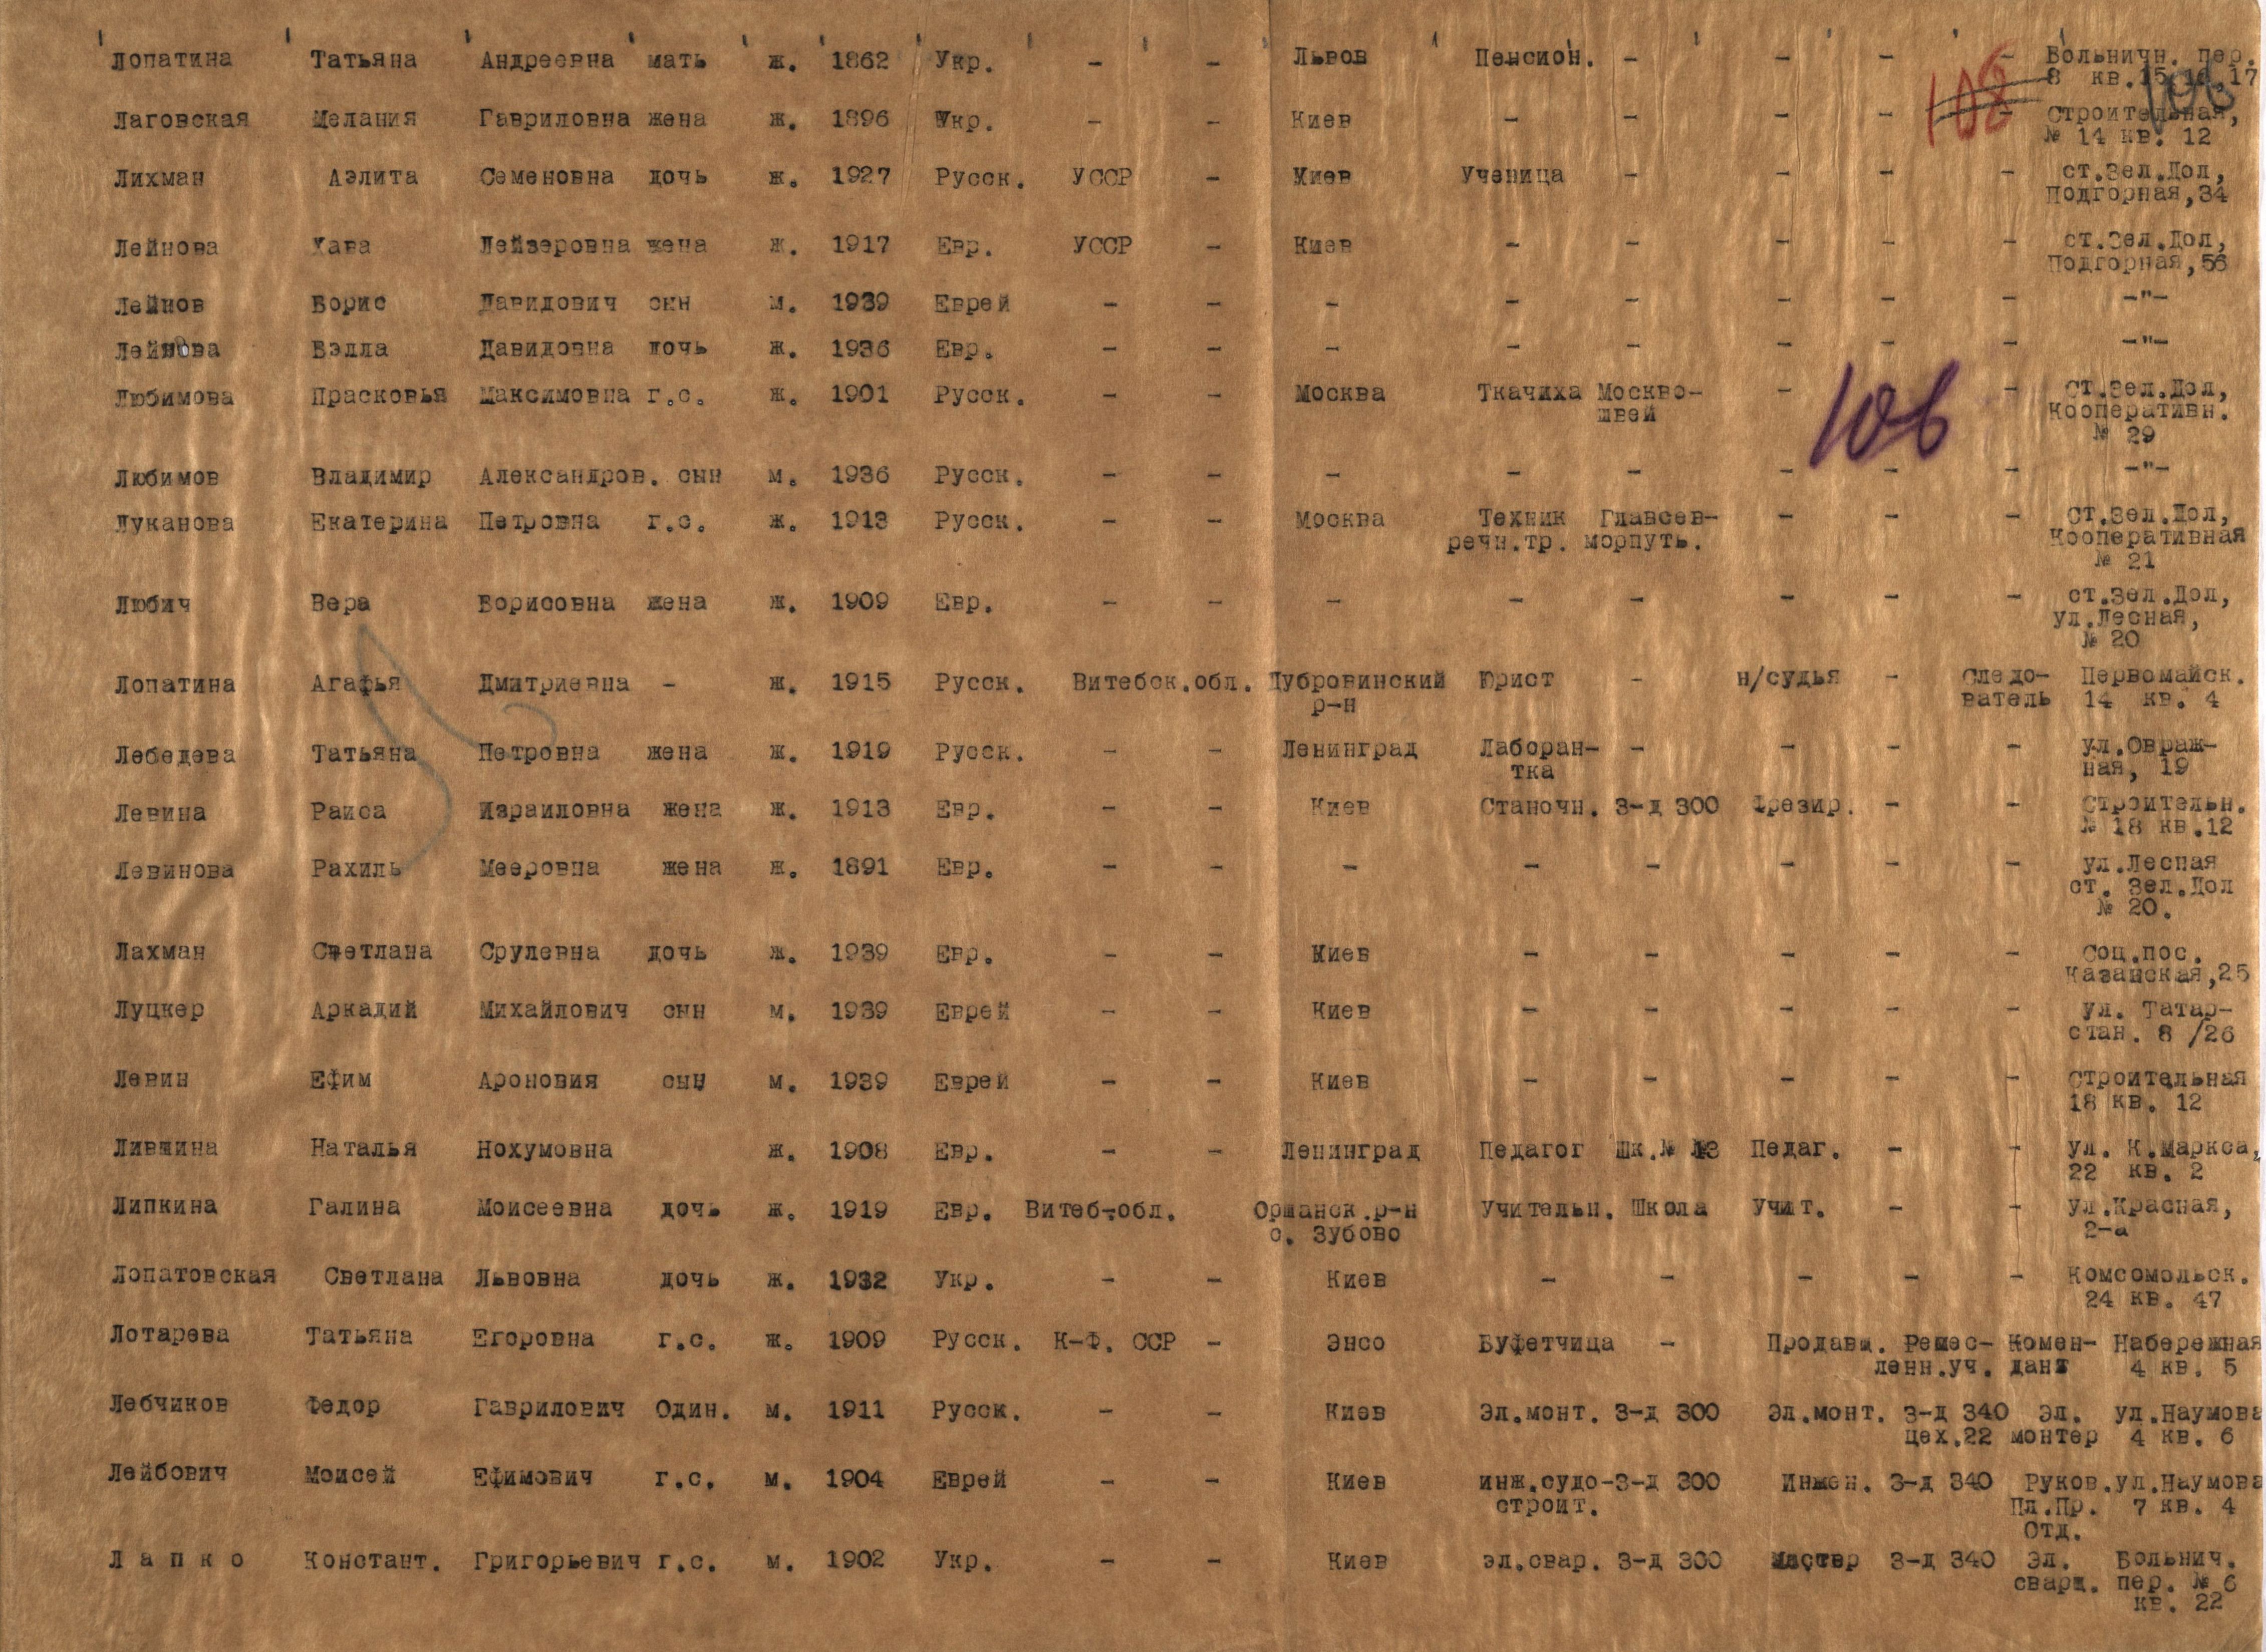 Лопатина Татьяна Андреевна мать ж. 1862 Укр. - - Львов Пенсион. - - - - Больничн. пер.
8 кв.15 17
106
Лаговская Мелания Гавриловна жена ж. 1896 Укр. - - Киев - - - - - Строительная,
№ 14 кв. 12
Лихман Аэлита Семеновна дочь ж. 1927 Русск. УССР - Киев Ученица - - - - ст.Зел.Дол,
Подгорная,34
Лейнова Хава Лейзеровна жена ж. 1917 Евр. УССР - Киев - - - - - ст.Зел.Дол,
Подгорная,56
Лейнов Борис Давидович сын м. 1939 Еврей - - - - - - - - -"-
Лейнова Бэлла Давидовна дочь ж. 1936 Евр. - - - - - - - - -"-
Любимова Прасковья Максимовна г.с. ж. 1901 Русск. - - Москва Ткачиха Москво- - - ст.Зел.Дол,
швей Кооперативн.
106
№ 29
Любимов Владимир Александров. сын м. 1936 Русск. - - - - - - - - -"-
Луканова Екатерина Петровна г.с. ж. 1913 Русск. - - Москва Техник Главсев- - - - ст.Зел.Дол,
речн.тр. морпуть. Кооперативная
№ 21
Любич Вера Борисовна жена ж. 1909 Евр. - - - - - - - - ст.Зел.Дол,
ул.Лесная,
№ 20
Лопатина Агафья Дмитриевна - ж. 1915 Русск. Витебск.обл. Дубровинский Юрист - н/судья - Следо- Первомайск.
р-н ватель 14 кв. 4
Лебедева Татьяна Петровна жена ж. 1919 Русск. - - Ленинград Лаборан- - - - - ул.Овраж-
тка ная, 19
Левина Раиса Израиловна жена ж. 1913 Евр. - - Киев Станочн. З-д 300 Фрезир. - - Строительн.
№ 18 кв.12
Левинова Рахиль Мееровна жена ж. 1891 Евр. - - - - - - - - ул.Лесная
ст. Зел.Дол
№ 20.
Лахман Светлана Срулевна дочь ж. 1939 Евр. - - Киев - - - - - Соц.пос.
Казанская,25
Луцкер Аркадий Михайлович сын м. 1939 Еврей - - Киев - - - - - ул. Татар-
стан. 8 /26
Левин Ефим Ароновия сын м. 1939 Еврей - - Киев - - - - - Строительная
18 кв. 12
Лившина Наталья Нохумовна ж. 1908 Евр. - - Ленинград Педагог Шк.№ Педаг. - - ул. К.Маркса,
22 кв. 2
Липкина Галина Моисеевна дочь ж. 1919 Евр. Витеб-обл. Оршанск.р-н Учительн. Школа Учит. - - ул.Красная,
с. Зубово 2-а
Лопатовская Светлана Львовна дочь ж. 1932 Укр. - - Киев - - - - - Комсомольск.
24 кв. 47
Лотарева Татьяна Егоровна г.с. ж. 1909 Русск. К-Ф. ССР - Энсо Буфетчица - Продавщ. Ремес- Комен- Набережная
ленн.уч. дант 4 кв. 5
Лебчиков Федор Гаврилович Один. м. 1911 Русск. - - Киев Эл.монт. З-д 300 Эл.монт. З-д 340 Эл. ул.Наумова
цех.22 монтер 4 кв. 6
Лейбович Моисей Ефимович г.с. м. 1904 Еврей - - Киев инж.судо-З-д 300 Инжен. З-д 340 Руков.ул.Наумова
строит. Пл.Пр. 7 кв. 4
Отд.
Л а п к о Констант. Григорьевич г.с. м. 1902 Укр. - - Киев эл.свар. З-д 300 Мастер З-д 340 Эл. Больнич.
сварщ. пер. № 6
кв. 22